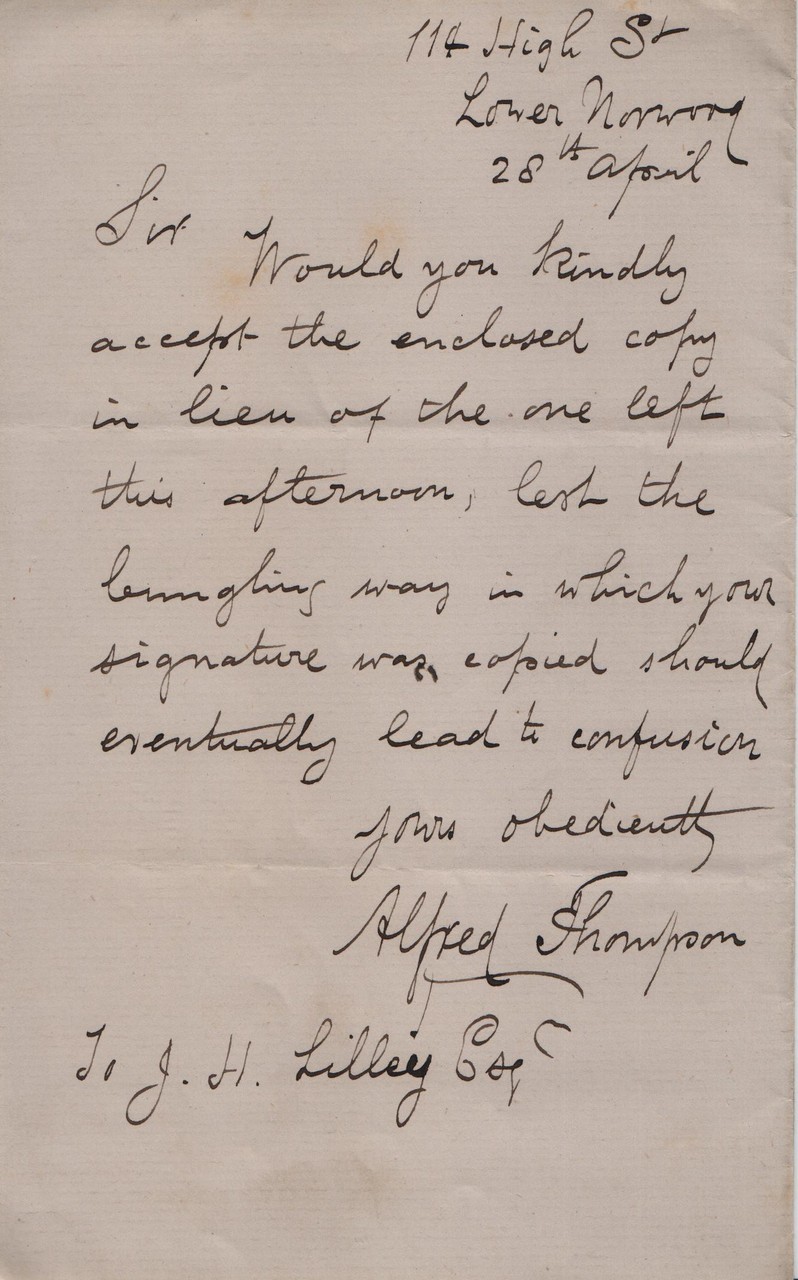 114 High St
Lower Norwood
28th April
Sir
Would you kindly
accept the enclosed copy
in lieu of the one left
this afternoon, lest the
bungling way in which your
signature was copied should
eventually lead to confusion
yours obediently
Alfred Thompson
To J. H. Lilley Esqr